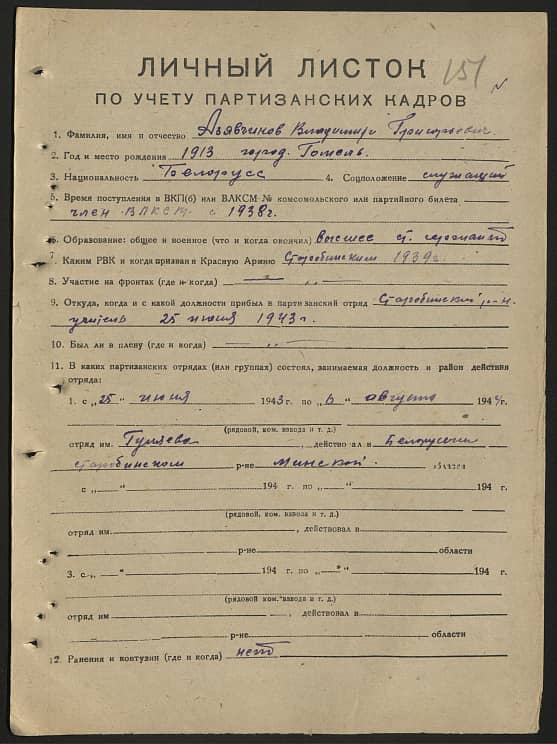 151
ЛИЧНЫЙ ЛИСТОК
ПО УЧЕТУ ПАРТИЗАНСКИХ КАДРОВ
1. Фамилия, имя и отчество Азявчиков Владимир Григорьевич.
2. Год и место рождения 1913 город. Гомель.
3. Национальность Белорусс 4. Соцположение служащий
5. Время поступления в ВКП(б) или ВЛКСМ № комсомольского или партийного билета
член ВЛКСМ с 1938г.
6. Образование: общее и военное (что и когда окончил) высшее ст. сержант
7. Каким РВК и когда призван в Красную Армию Старобинским 1939г.
8. Участие на фронтах (где и когда) — „ —
9. Откуда, когда и с какой должности прибыл в партизанский отряд Старобинский р-н.
учитель 25 июня 1943г.
10. Был ли в плену (где и когда) — „ —
11. В каких партизанских отрядах (или группах) состоял, занимаемая должность и район действия
отряда:
1. с „25“ июня 1943г. по „6“ августа 1944г.
(рядовой, ком. взвода и т. д.)
отряд им. Гуляева, действовал в Белоруссии
старобинском р-не минской. области
с „ “ 194 г. по „ “ 194 г.
(рядовой, ком. взвода и т. д.)
отряд им. , действовал в
р-не области
3. с „ “ 194 г. по „ “ 194 г.
(рядовой ком. взвода и т. д.)
отряд им , действовал в
р-не области
12. Ранения и контузии (где и когда) нет